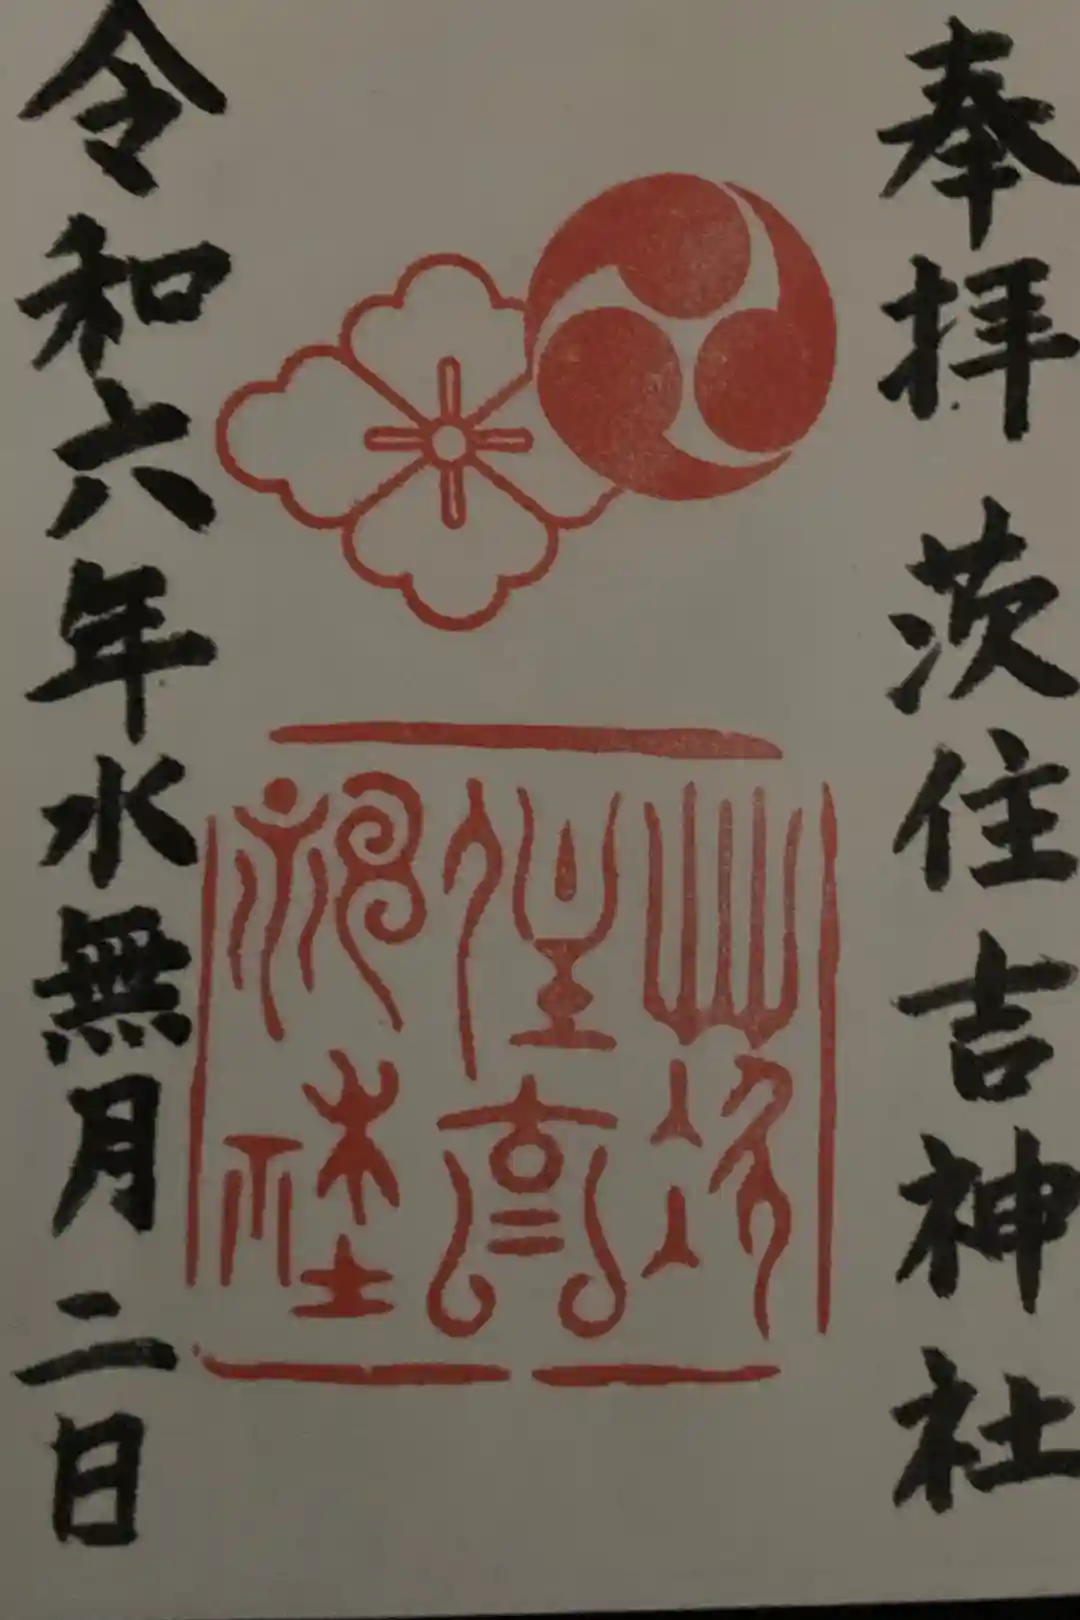 奉拝 茨住吉神社
茨住吉神社
令和六年水無月二日